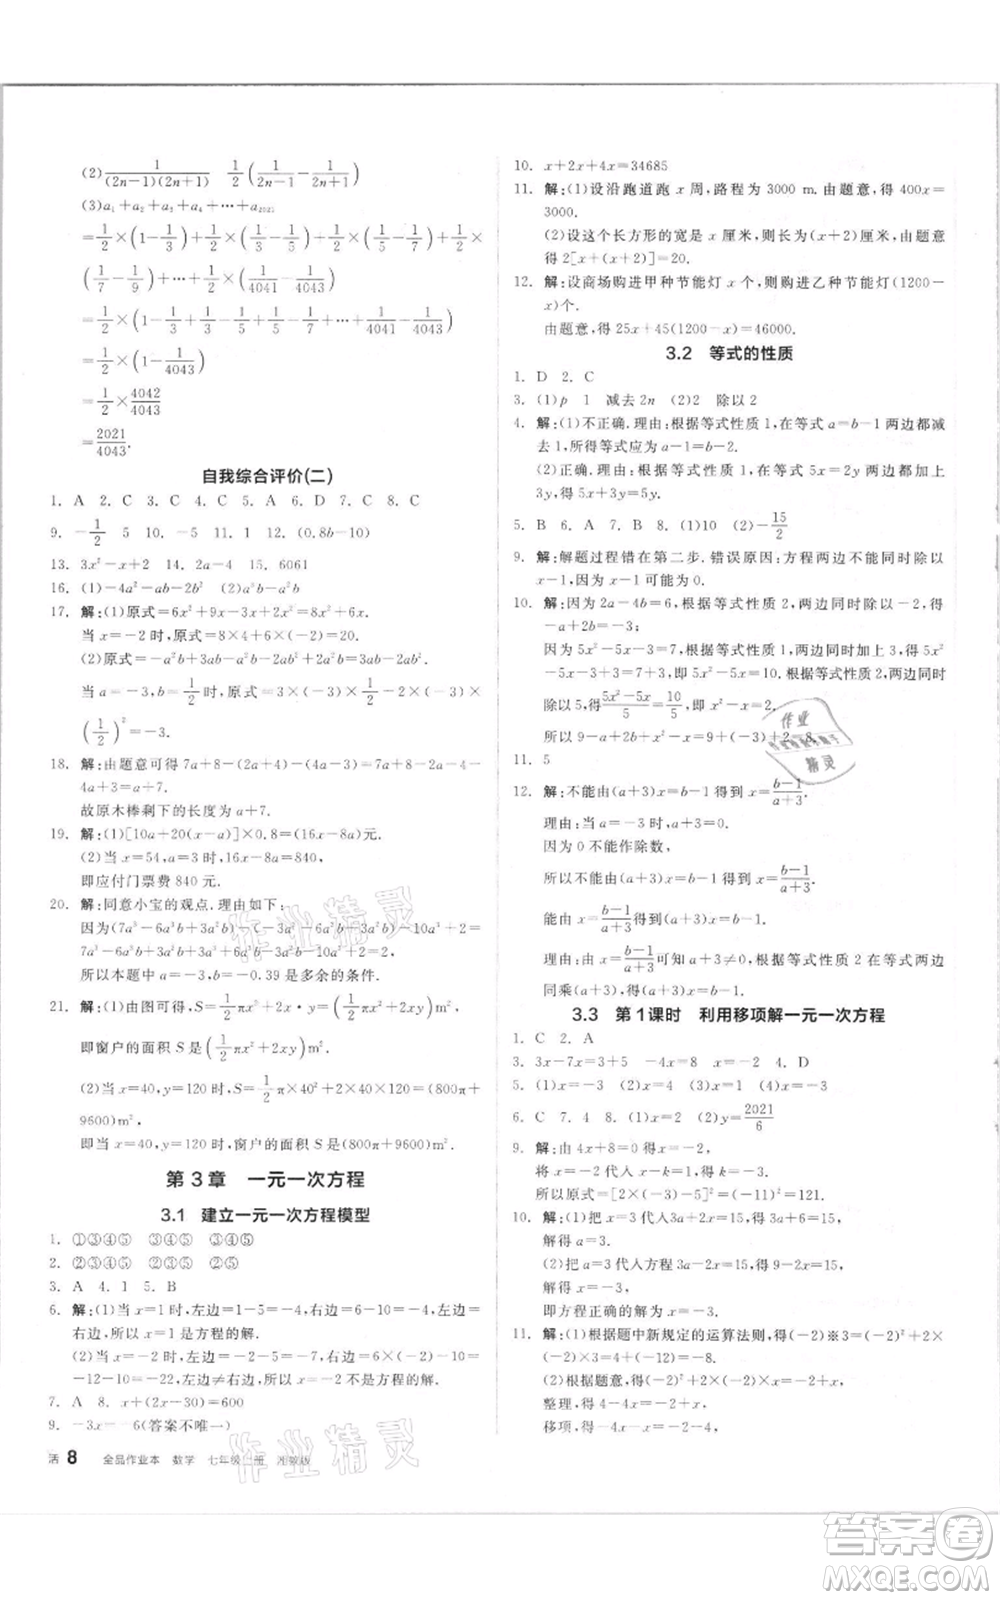 (2) 1/((2n−1)(2n+1))  1/2(1/(2n−1)−1/(2n+1))
(3)a₁+a₂+a₃+a₄+⋯+a₂₀₂₁
=1/2×(1−1/3)+1/2×(1/3−1/5)+1/2×(1/5−1/7)+1/2×
(1/7−1/9)+⋯+1/2×(1/4041−1/4043)
=1/2×(1−1/3+1/3−1/5+1/5−1/7+⋯+1/4041−1/4043)
=1/2×(1−1/4043)
=1/2×4042/4043
=2021/4043.
自我综合评价(二)
1. A 2. C 3. C 4. C 5. A 6. D 7. C 8. C
9. −1/2 5 10. −5 11. 1 12. (0.8b−10)
13. 3x²−x+2 14. 8 15. 6061
16. (1)−4a²−ab−2b² (2)a³b−a²b
17. 解:(1)原式=6x²+9x−3−2x²−10x+5=4x²−x+2.
当x=−2时,原式=8×4+3×(−2)−6=20.
(2)原式=−a²b+3ab−a²b−4ab+2a²b=−ab
当a=−3,b=1/2时,原式=3×(−3)×
(1/2)²=−3.
18. 解:由题意可得7a+8−2(a+4)−1/2(7a+8−2a−8)
故原木棒剩下的长度为a+7.
19. 解:(1)[10a+20(x−a)]×0.8=(16x−8a)元.
(2)当x=54,a=3时,16x−8a=840,
即应付门票费840元.
20. 解:同意小宝的观点.理由如下:
所以本题中a=0.35,b=−0.39是多余的条件.
21. 解:(1)由图可得,S=1/2πx²+2x·y=(1/2πx²+2xy)m²,
即窗户的面积S是(1/2πx²+2xy)m².
(2)当x=40,y=120时,S=1/2π×40²+2×40×120=(800π+
9600)m²,
即当x=40,y=120时,窗户的面积S是(800π+9600)m².
第3章 一元一次方程
3.1 建立一元一次方程模型
1. ①③④⑤ ②③④⑤ ③④⑤
2. ②③④⑤ ②③⑤ ②⑤
3. A 4. 1 5. B
6. 解:(1)当x=1时,左边=1−5=−4,右边=6−10=−4,左边=
右边,所以x=1是方程的解.
(2)当x=−2时,左边=−2−5=−7,右边=6×(−2)−10=
−12−10=−22,左边≠右边,所以x=−2不是方程的解.
7. A 8. x+(2x−30)=600
9. −3x=−6(答案不唯一)
活 8 全品作业本 数学 七年级上册 湘教版
10. x+2x+4x=34685
11. 解:(1)设沿跑道跑x周,路程为3000 m.由题意,得400x=
3000.
(2)设这个长方形的宽是x厘米,则长为(x+2)厘米.由题意,
得2[x+(x+2)]=20.
12. 解:设商场购进甲种节能灯x个,则购进乙种节能灯(1200−
x)个.
由题意,得25x+45(1200−x)=46000.
3.2 等式的性质
1. D 2. C
3. (1)p 1 减去2n (2)2 除以2
4. 解:(1)不正确.理由:根据等式性质1,在等式a=b两边都减
去1,所得等式应为a−1=b−1.
(2)正确.理由:根据等式性质1,在等式5x=2y两边都加上
3y,得5x+3y=5y.
5. B 6. A 7. B 8. (1)10 (2)−15/2
9. 解:解题过程错在第二步.错误原因:方程两边不能同时除以
x−1,x−1可能为0.
10. 解:因为2a−4b=6,根据等式性质2,两边同时除以−2,得
−a+2b=−3.
因为5x²−5x−3=7,根据等式性质1,两边同时加上3,得5x²
−5x−3+3=7+3,即5x²−5x=10.根据等式性质2,两边同时
除以5,得(5x²−5x)/5=10/5,即x²−x=2.
所以9−a+2b=9−3=6.
11. 5
12. 解:不能由(a+3)x=b−1得到x=(b−1)/(a+3).
理由:当a=−3时,a+3=0.
因为0不能作除数,
所以不能由(a+3)x=b−1得到x=(b−1)/(a+3).
能由x=(b−1)/(a+3)得到(a+3)x=b−1.
理由:由x=(b−1)/(a+3)可知a+3≠0,根据等式性质2,等式两边
同乘(a+3),得(a+3)x=b−1.
3.3 第1课时 利用移项解一元一次方程
1. C 2. A
3. 3x−7x=3+5 −4x=8 x=−2 4. D
5. (1)x=−3 (2)x=4 (3)x=1 (4)x=−3
6. C 7. 4 8. (1)x=2 (2)y=2021/6
9. 解:由4x+8=0得x=−2.
所以原式=[2×(−3)−5]²=(−11)²=121.
10. 解:(1)把x=3代入3a+2x=15,得3a+6=15,
解得a=3.
(2)把a=3代入方程,得3×3−2x=15,
解得x=−3.
即方程正确的解为x=−3.
11. 解:(1)根据题中新规定的运算法则,
(2)根据题意,得
作业精灵
作业精灵
作业
精灵
答案卷
MXQE.COM